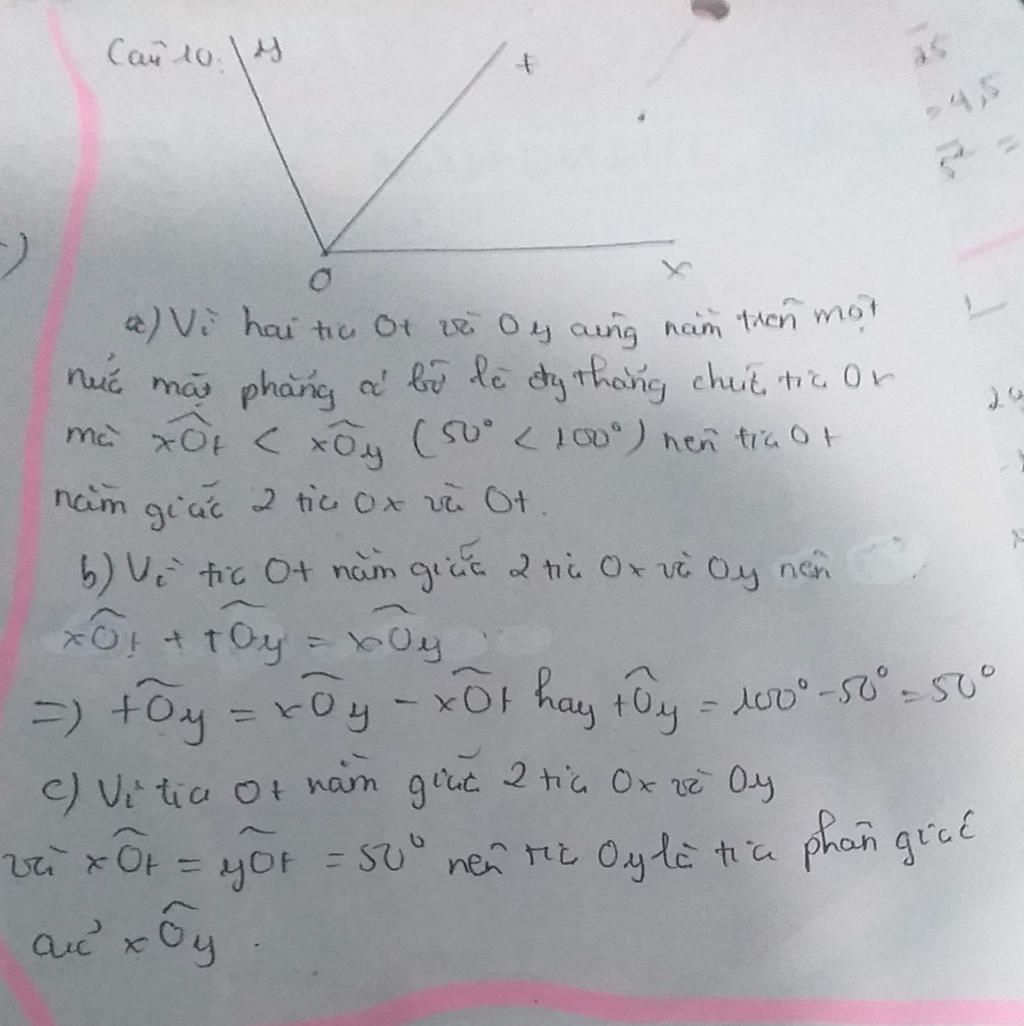 Câu 10:
y
t
O
x
a) Vì hai tia Ot và Oy cùng nằm trên một
nửa mặt phẳng có bờ là đg thẳng chứa tia Ox
mà xÔt < xÔy (50° < 100°) nên tia Ot
nằm giữa 2 tia Ox và Ot.
b) Vì tia Ot nằm giữa 2 tia Ox và Oy nên
xÔt + tÔy = xÔy
=> tÔy = xÔy - xÔt hay tÔy = 100° - 50° = 50°
c) Vì tia Ot nằm giữa 2 tia Ox và Oy
và xÔt = yÔt = 50° nên tia Oy là tia phân giác
của xÔy.
25
= 4,5